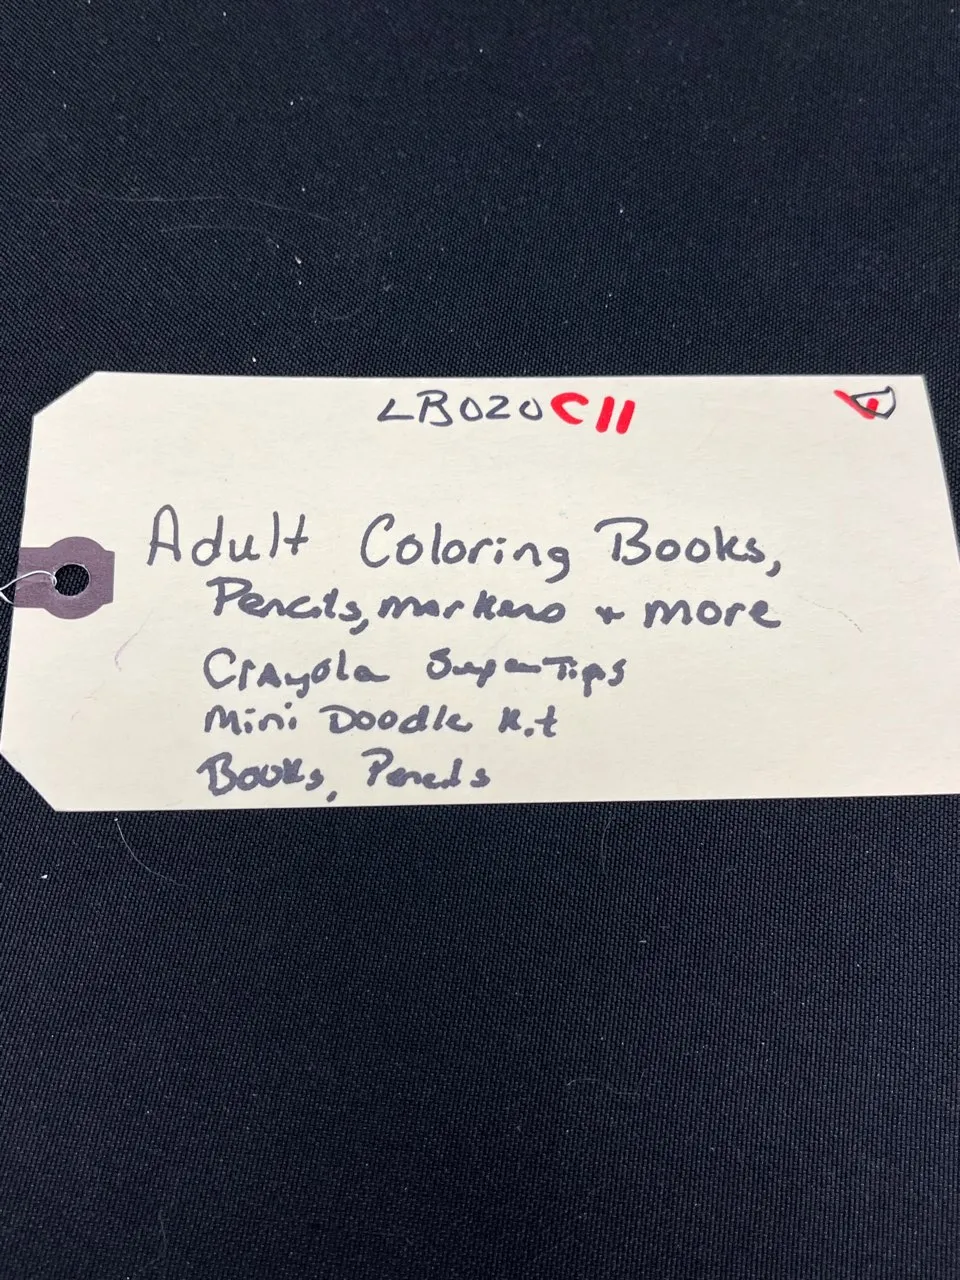 LB020 C11
Adult Coloring Books,
Pencils, markers + more
Crayola SuperTips
Mini Doodle Kit
Books, Pencils